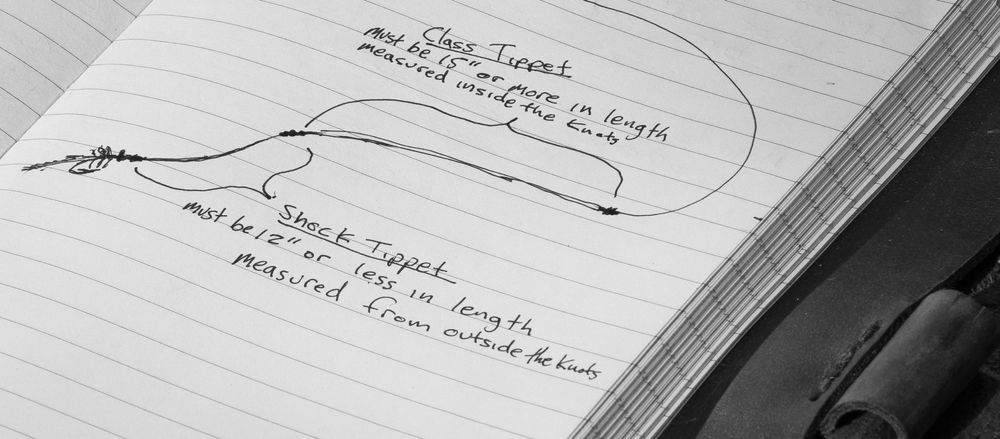 Class Tippet
must be 15" or more in length
measured inside the Knots
Shock Tippet
must be 12" or less in length
measured from outside the Knots